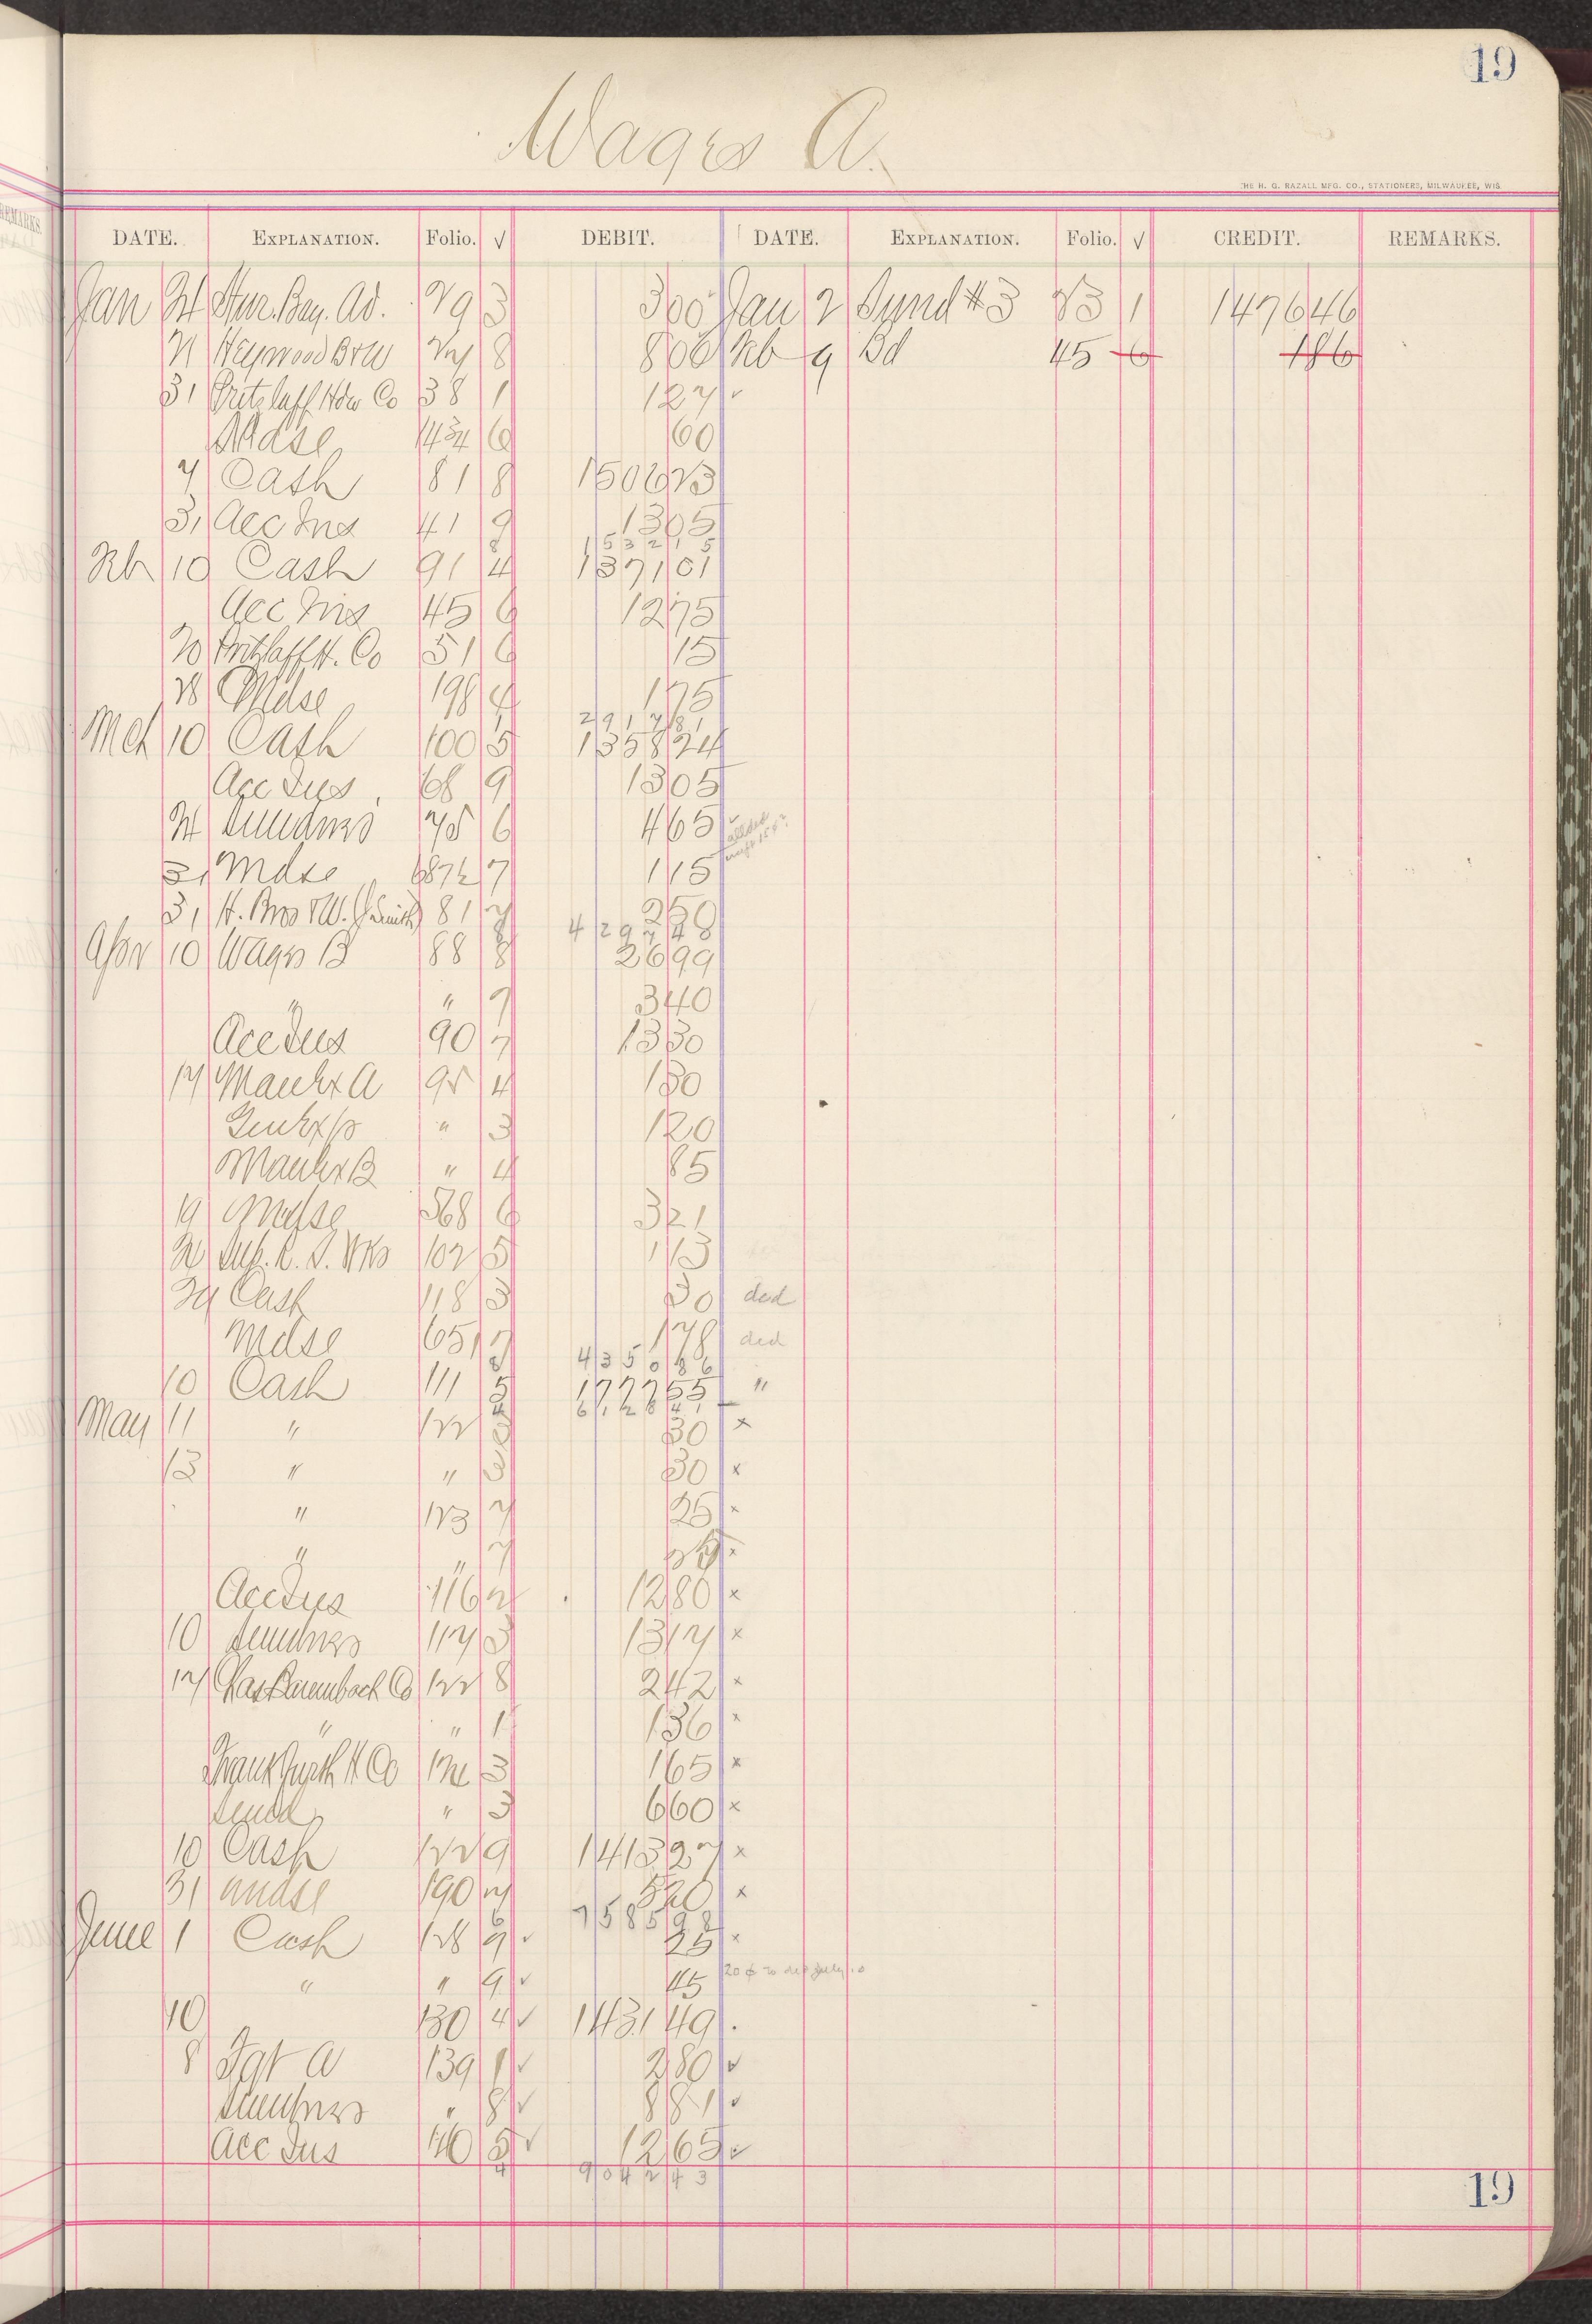 19
Wages A.
THE H. G. RAZALL MFG. CO., STATIONERS, MILWAUKEE, WIS.
REMARKS.
DATE. EXPLANATION. Folio. √ DEBIT. DATE. EXPLANATION. Folio. √ CREDIT. REMARKS.
Jan 24 Stur. Bay. Ad. 29 3 300 Jan 2 Synd #3 23 1 147646
21 Heywood B & W 27 8 800 Feb 9 Bd 45 6 186
31 Pritzlaff Hdw Co 38 1 127 ✓
Mdse 1434 6 60
7 Cash 81 8 150623
31 Acc Ins 41 9 1305
8 153215
Feb 10 Cash 91 4 137101
Acc Ins 45 6 1275
20 Pritzlaff H. Co 51 6 15
28 Mdse 198 4 175
1 291781
Mch 10 Cash 100 5 135824
Acc Ins 68 9 1305
24 Sundries 75 6 465 ✓
31 Mdse 6872 7 115
31 H. Bros & W. (Smith) 81 7 250
8 429748
Apr 10 Wages B 88 8 2699
" " 7 340
Acc Ins 90 7 1330
17 Manfx A 95 4 180
Genlx " 3 120
Manfx B " 4 85
19 Mdse 568 6 321
20 Sup. 102 5 113
29 Cash 118 3 30 ded
Mdse 651 7 178 ded
8 435086
10 Cash 111 5 177755 "
4 612841
May 11 " 122 3 30 x
13 " " 3 30 x
" 123 7 25 x
" " 7 x
Acc Ins 116 2 1280 x
10 Sundries 117 3 1317 x
17 Chas Baumbach Co 122 8 242 x
" " 1 136 x
Frankfurth H Co 124 3 165 x
Sund " 3 660 x
10 Cash 122 9 141327 x
31 Mdse 190 7 520 x
6 758598
June 1 Cash 128 9 ✓ 25 x
" " 9 ✓ 45 20¢ to ded July 10
10 130 4 ✓ 143149 .
8 Fgt A 139 1 ✓ 280 ✓
Sundries " 8 ✓ 881 ✓
Acc Ins 140 5 ✓ 1265 ✓
4 904243
19